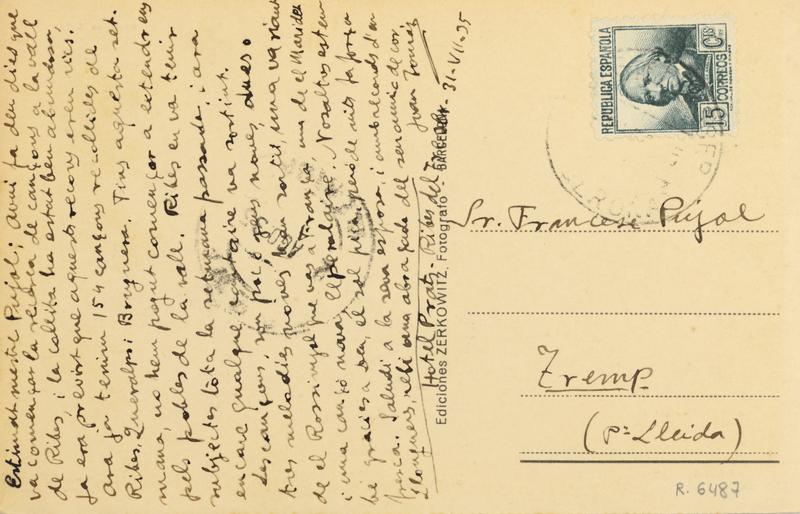 Estimat mestre Pujol: Avui fa deu dies que
va començar la recerca de cançons a la vall
de Ribes, i la collita ha estat ben abundosa,
ja era previst que aquests recons eren rics.
Ara ja tenim 154 cançons recollides de
Ribes, Queralps i Bruguera. Fins aquesta set-
mana, no hem pogut començar a estendre'ns
pels pobles de la vall. Ribes en va tenir
subjectes tota la setmana passada, i ara
encare qualque cantaire va sortint.
Les cançons, son poc noves, dues o
tres melodies noves han sortit, una variant
de el Rossinyol que vas a França, una de el Maridet
i una cançó nova, El peraláire. Nosaltres estem
bé gracies a Deu, el sol pica, però de nits fa força
fresca. Saludi a la seva esposa, i amb records d'en
Llongueres, rebi una abraçada del seu amic de cor,
Joan Tomàs
Hotel Prats, Ribes del Freser 31-VII-35
Ediciones ZERKOWITZ, Fotografo BARCELONA
REPUBLICA ESPAÑOLA
15 Cts
CORREOS
Sr. Francesc Pujol
Tremp
(pª Lleida)
R. 6487